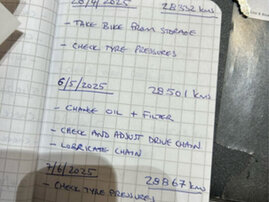 20/4/2025 28332 kms
- TAKE BIKE FROM STORAGE
- CHECK TYRE PRESSURES
6/5/2025 28501 kms
- CHANGE OIL + FILTER
- CHECK AND ADJUST DRIVE CHAIN
- LUBRICATE CHAIN
7/6/2025 28867 kms
- CHECK TYRE PRESSURES